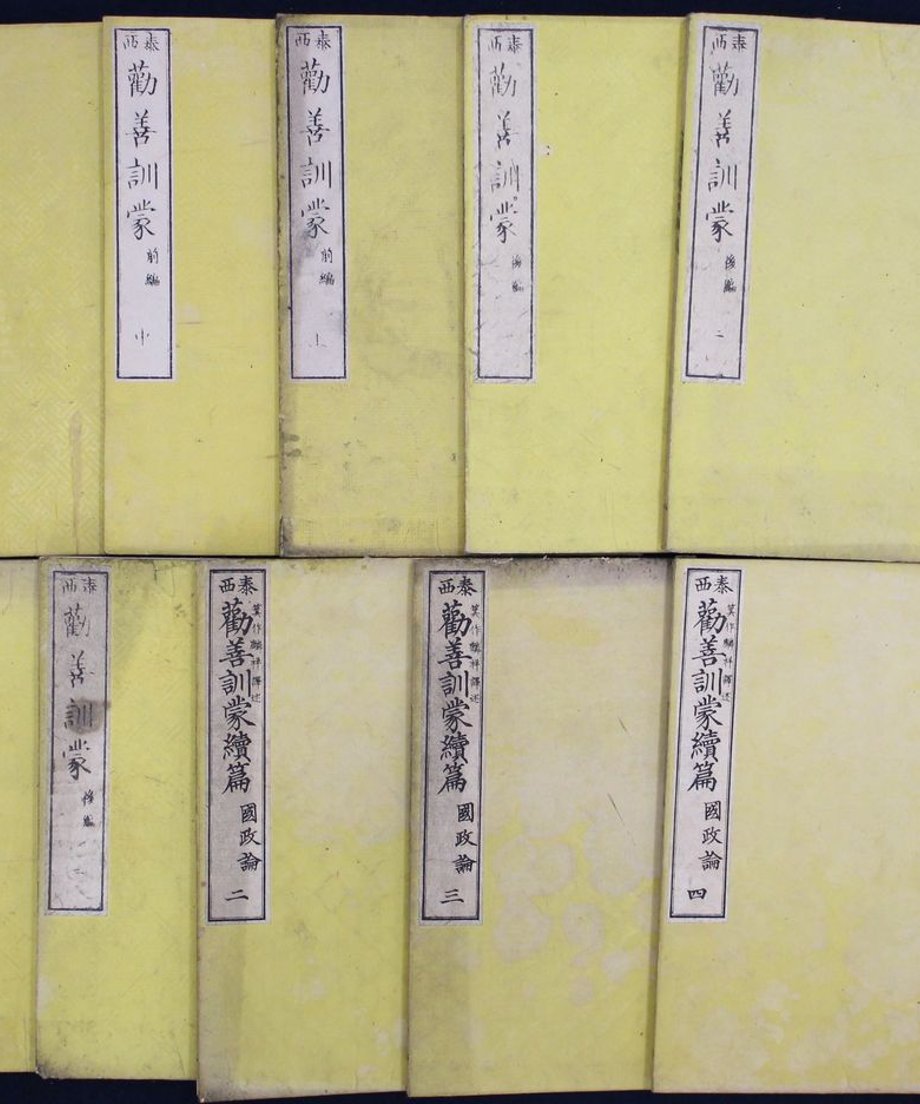 泰西
勸善訓蒙
前編
中
泰西
勸善訓蒙
前編
上
泰西
勸善訓蒙
後編
泰西
勸善訓蒙
後編
二
泰西
勸善訓蒙
後編
泰西
箕作麟祥譯述
勸善訓蒙續篇
國政論
二
泰西
箕作麟祥譯述
勸善訓蒙續篇
國政論
三
泰西
箕作麟祥譯述
勸善訓蒙續篇
國政論
四